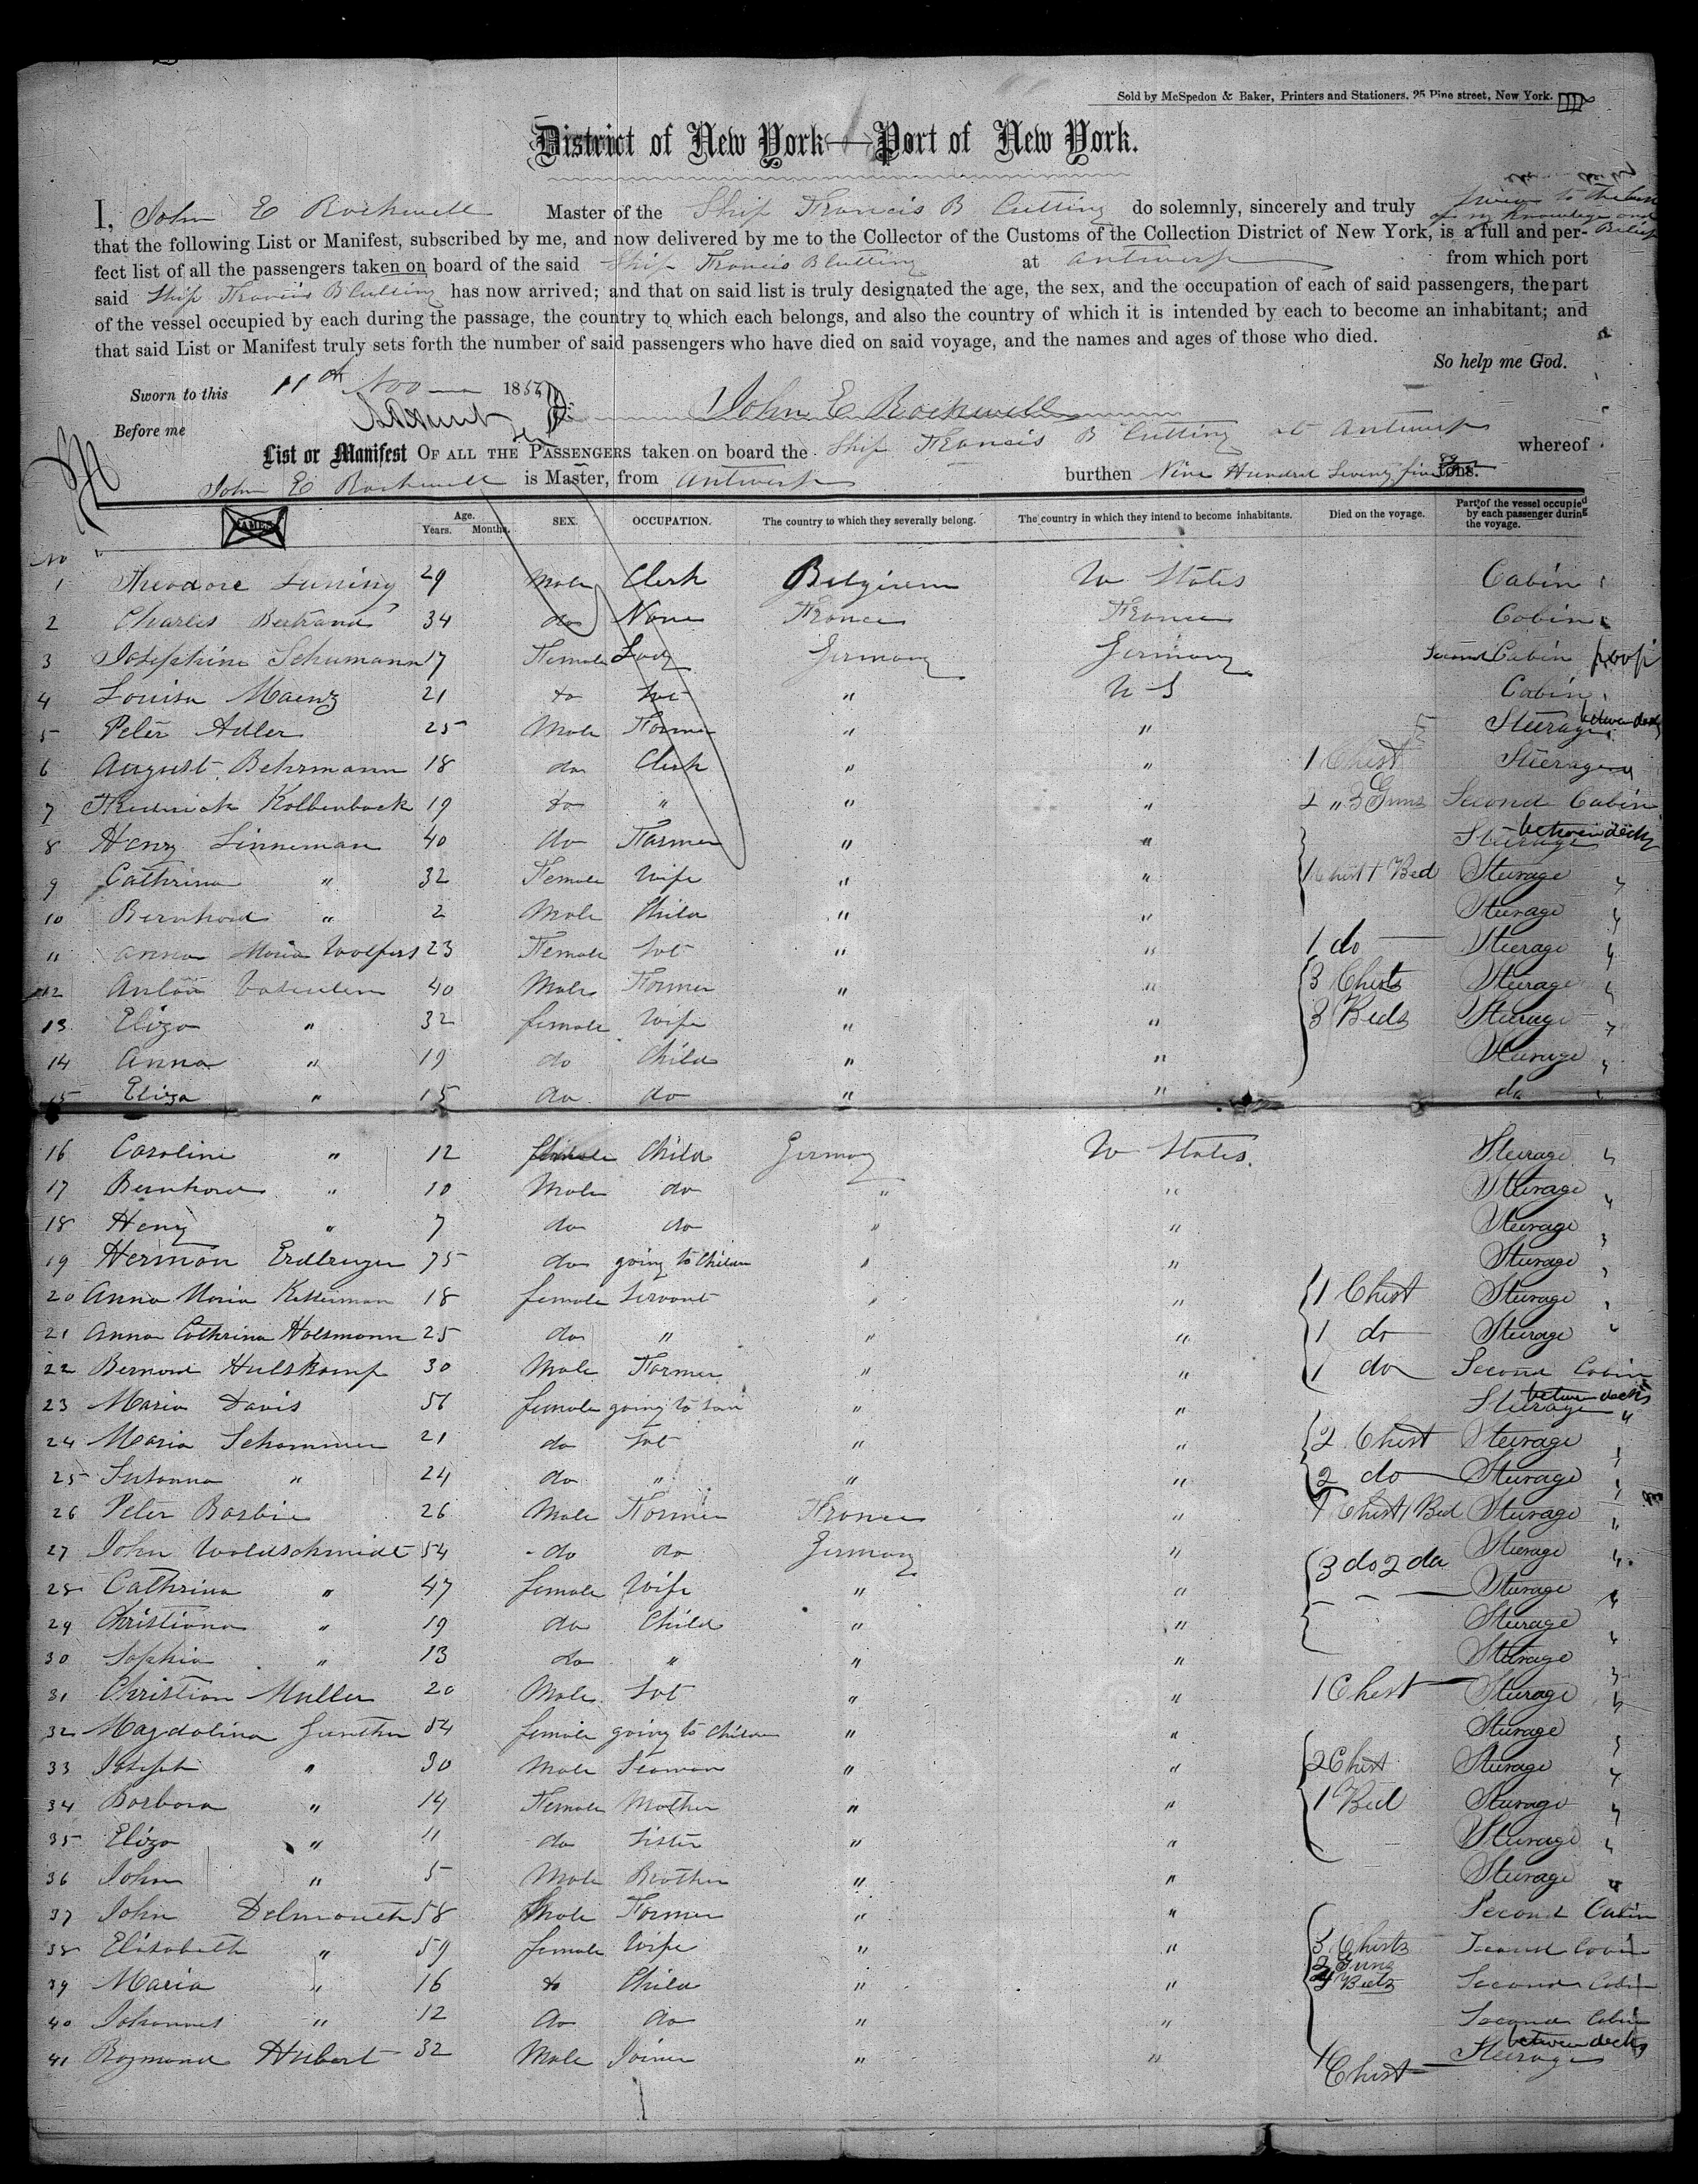 Sold by McSpedon & Baker, Printers and Stationers, 25 Pine street, New York.
District of New York—Port of New York.
I, John E Rockwell Master of the Ship Francis B Cutting do solemnly, sincerely and truly swear to the best of my knowledge and Belief
that the following List or Manifest, subscribed by me, and now delivered by me to the Collector of the Customs of the Collection District of New York, is a full and per-
fect list of all the passengers taken on board of the said Ship Francis B Cutting at Antwerp from which port
said Ship Francis B Cutting has now arrived; and that on said list is truly designated the age, the sex, and the occupation of each of said passengers, the part
of the vessel occupied by each during the passage, the country to which each belongs, and also the country of which it is intended by each to become an inhabitant; and
that said List or Manifest truly sets forth the number of said passengers who have died on said voyage, and the names and ages of those who died.
So help me God.
Sworn to this 11th Nov 185
John E Rockwell
Before me
List or Manifest OF ALL THE PASSENGERS taken on board the Ship Francis B Cutting at Antwerp whereof
John E Rockwell is Master, from Antwerp burthen Nine Hundred Seventy five tons.
NAMES Age. Years. Months. SEX. OCCUPATION. The country to which they severally belong. The country in which they intend to become inhabitants. Died on the voyage. Part of the vessel occupied by each passenger during the voyage.
No
1 Theodore Luning 29 Male Clerk Belgium U States Cabin
2 Charles Bertrand 34 do None France France Cabin
3 Josephine Schumann 17 Female Lady Germany Germany Second Cabin poop
4 Louisa Maenz 21 do U S Cabin
5 Peter Adler 25 Male Farmer " " Steerage between decks
6 August Behrmann 18 do Clerk " " 1 Chest Steerage
7 Frederick Kolbenback 19 do " " " 2 " 3 Guns Second Cabin
8 Henry Linneman 40 do Farmer " " Steerage between decks
9 Cathrina " 32 Female Wife " " 1 Chest 1 Bed Steerage "
10 Bernhard " 2 Male Child " " Steerage "
11 Anna Maria Wolfers 23 Female " " 1 do Steerage "
12 Anton 40 Male Farmer " " 3 Chests Steerage "
13 Eliza " 32 female Wife " " 3 Beds Steerage "
14 Anna " 19 do Child " " Steerage "
15 Eliza " 15 do do " " do "
16 Caroline " 12 female Child Germany U States. Steerage "
17 Bernhard " 10 Male do " " Steerage "
18 Henry " 7 do do " " Steerage "
19 Herman 75 do going to Children " " Steerage "
20 Anna Maria 18 female Servant " " 1 Chest Steerage "
21 Anna Cathrina Holsmann 25 do " " " 1 do Steerage "
22 Bernard Hulskamp 30 Male Farmer " " 1 do Second Cabin
23 Maria Davis 56 female going to " " Steerage between decks "
24 Maria Schammer 21 do " " 2 Chest Steerage "
25 Susanna " 24 do " " " 2 do Steerage "
26 Peter Barbie 26 Male Farmer France " 1 Chest 1 Bed Steerage "
27 John Woldschmidt 54 do do Germany " 3 do 2 do Steerage "
28 Cathrina " 47 female Wife " " Steerage "
29 Christiana " 19 do Child " " Steerage "
30 Sophia " 13 do " " " Steerage "
31 Christian Muller 20 Male " " 1 Chest Steerage "
32 Magdalina Gunther 54 female going to Children " " Steerage "
33 Joseph " 30 Male Seaman " " 2 Chest Steerage "
34 Barbara " 14 Female Mother " " 1 Bed Steerage "
35 Eliza " 11 do Sister " " Steerage "
36 John " 5 Male Brother " " Steerage "
37 John Delmoueth 58 Male Farmer " " Second Cabin
38 Elisabeth " 59 female Wife " " 3 Chests 2 Guns Second Cabin
39 Maria " 16 do Child " " 4 Beds Second Cabin
40 Johannes " 12 do do " " Second Cabin
41 Raymond Hubert 32 Male Joiner " " 1 Chest Steerage between decks